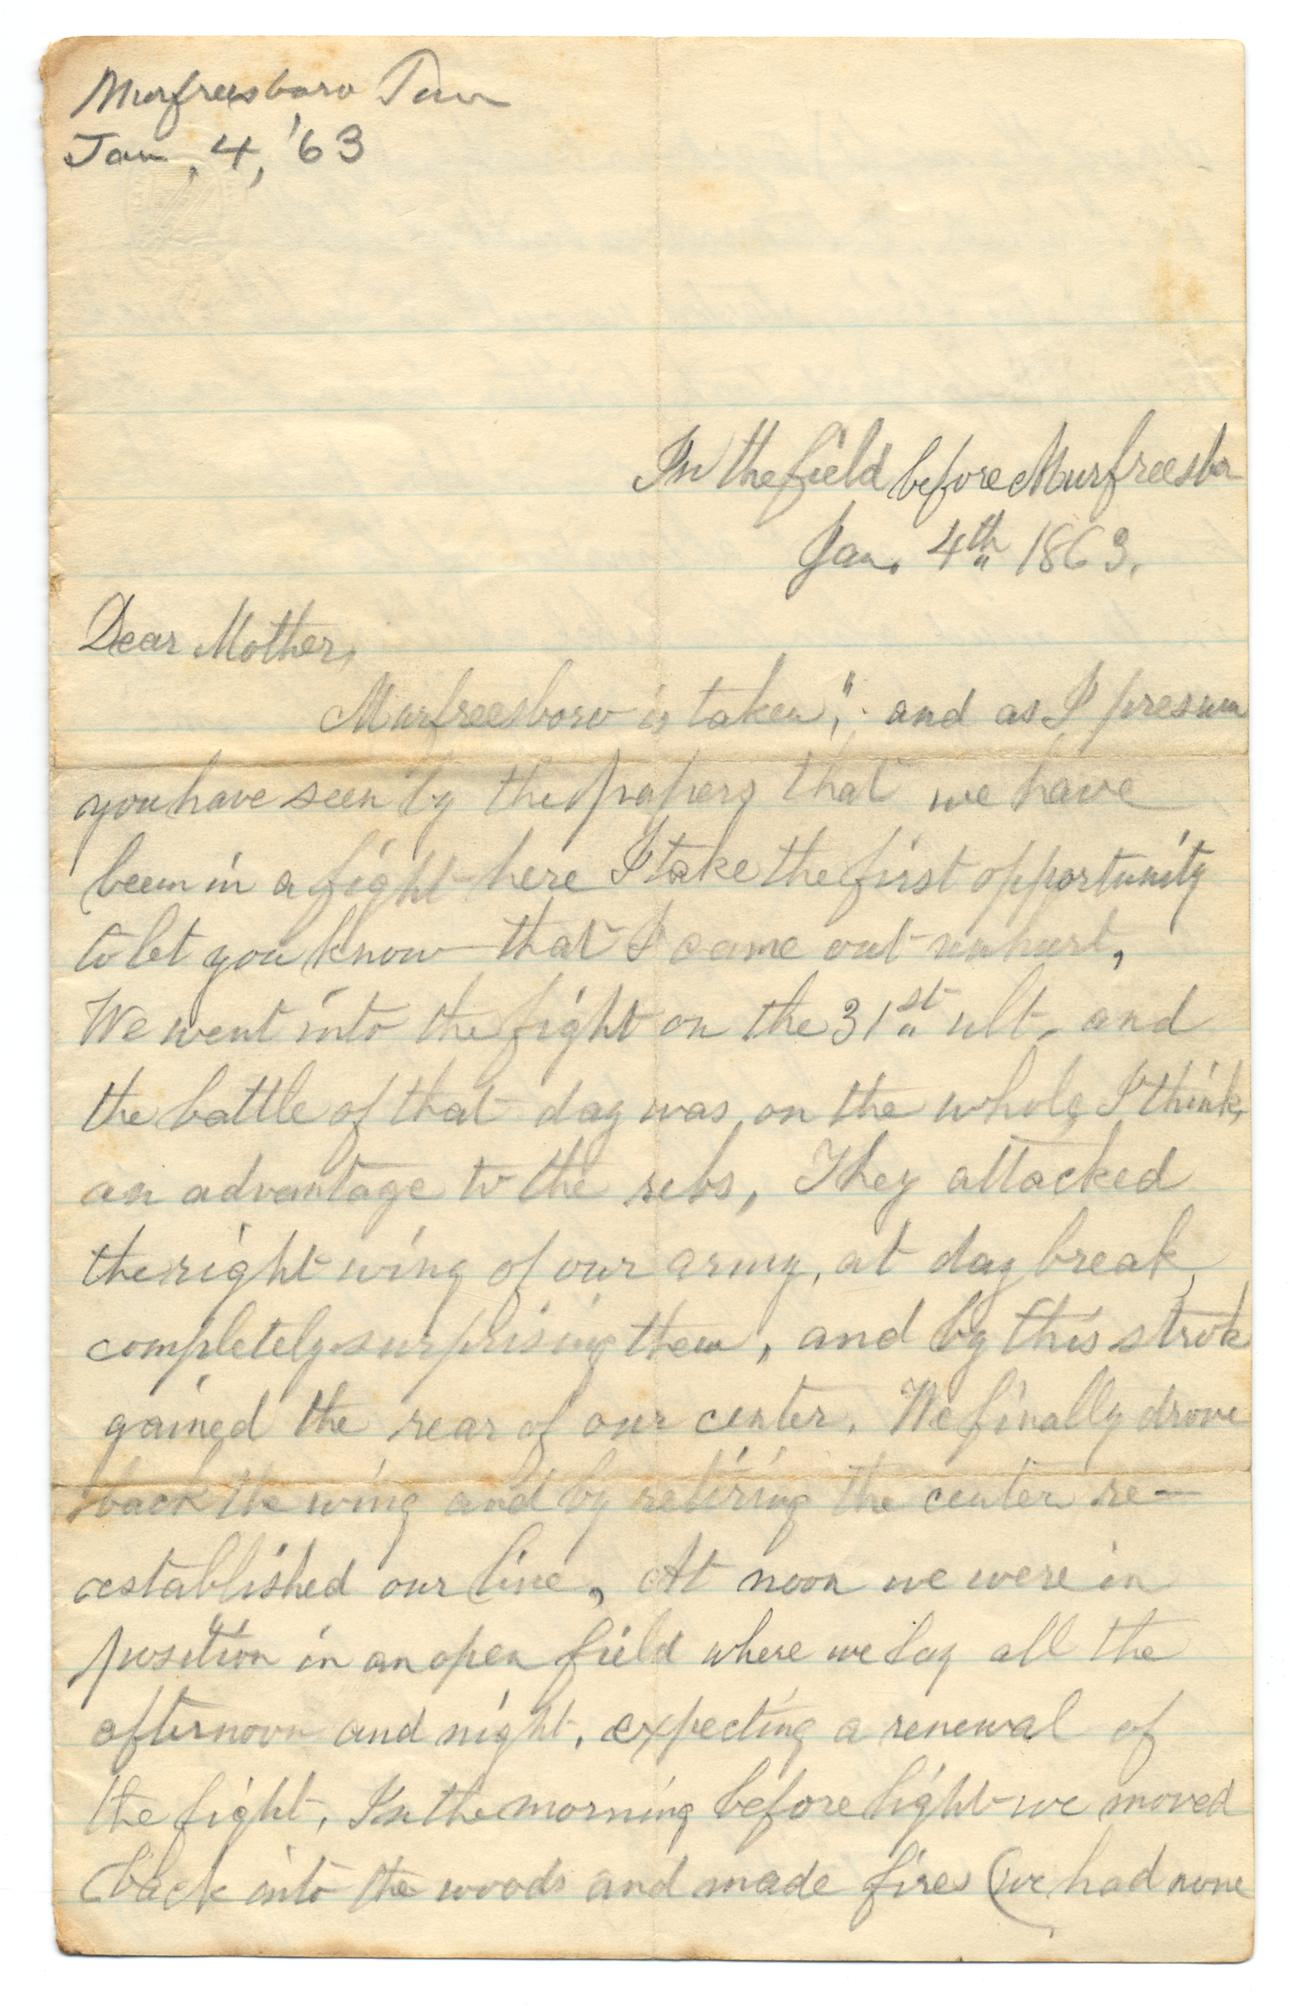 Murfreesboro Tenn
Jan, 4, '63
In the field before Murfreesbor
Jan. 4th 1863.
Dear Mother,
Murfreesboro is taken", and as I presum
you have seen by the papers that we have
been in a fight here I take the first opportunity
to let you know that I came out unhurt,
We went into the fight on the 31st ult. and
the battle of that day was, on the whole, I think,
an advantage to the rebs, They attacked
the right wing of our army, at day break,
completely surprising them, and by this strok
gained the rear of our center. We finally drove
back the wing and by retiring the center re-
established our line, At noon we were in
position in an open field where we lay all the
afternoon and night, expecting a renewal of
the fight, In the morning before light we moved
back into the woods and made fires (we had none